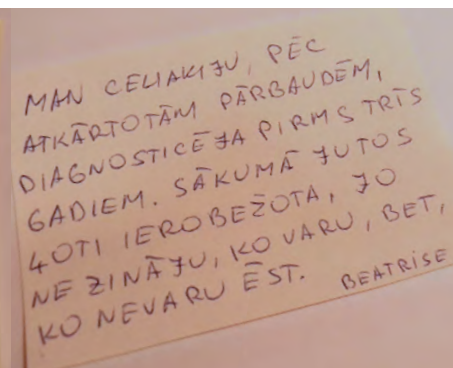 MAN CELIAKIJU, PĒC
ATKĀRTOTĀM PĀRBAUDĒM,
DIAGNOSTICĒJA PIRMS TRĪS
GADIEM. SĀKUMĀ JUTOS
ĻOTI IEROBEŽOTA, JO
NEZINĀJU, KO VARU, BET,
KO NEVARU ĒST.
BEATRISE